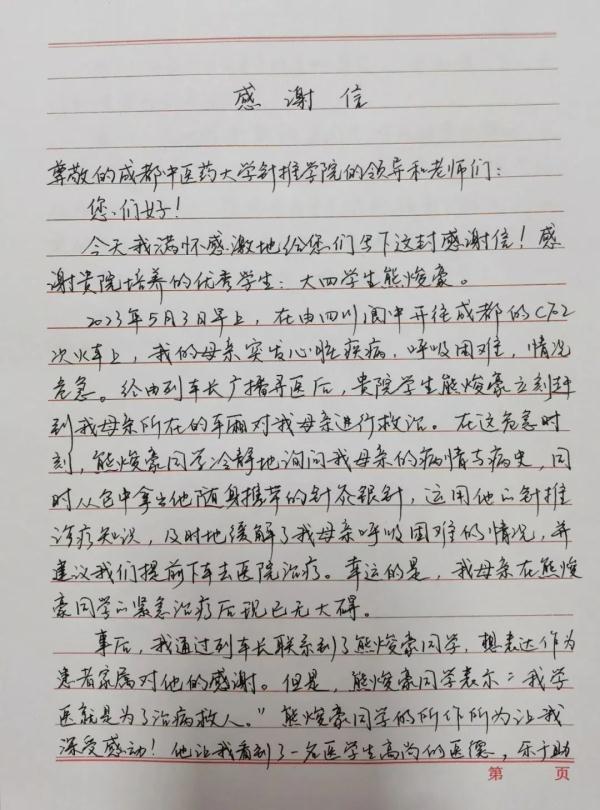 感谢信
尊敬的成都中医药大学针推学院的领导和老师们：
您们好！
今天我满怀感激地给您们写下这封感谢信！感
谢贵院培养的优秀学生：大四学生熊焌豪。
2023年5月3日早上，在由四川阆中开往成都的C702
次火车上，我的母亲突发心脏疾病，呼吸困难，情况
危急。经由列车长广播寻医后，贵院学生熊焌豪立刻赶
到我母亲所在的车厢对我母亲进行救治。在这危急时
刻，熊焌豪同学冷静地询问我母亲的病情与病史，同
时从包中拿出他随身携带的针灸银针，运用他的针推
诊疗知识，及时地缓解了我母亲呼吸困难的情况，并
建议我们提前下车去医院治疗。幸运的是，我母亲在熊焌
豪同学的紧急治疗后现已无大碍。
事后，我通过列车长联系到了熊焌豪同学，想表达作为
患者家属对他的感谢。但是，熊焌豪同学表示："我学
医就是为了治病救人。"熊焌豪同学的所作所为让我
深受感动！他让我看到了一名医学生高尚的医德，乐于助
第 页